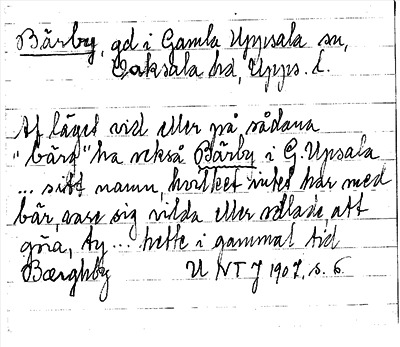 Bärby, gd i Gamla Uppsala sn,
Vaksala hd, Upps. l.
Af läget vid eller på sådana
"bärg" ha också Bärby i G. Upsala
... sitt namn, hvilket intet har med
bär, vare sig vilda eller odlade, att
göra, ty ... hette i gammal tid
Bærghby U NT J 1907, s. 6.